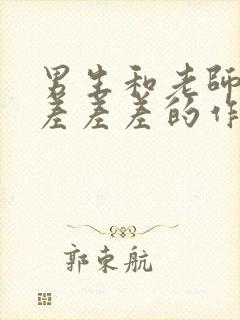 男生和老师
差差差的作
郭东航